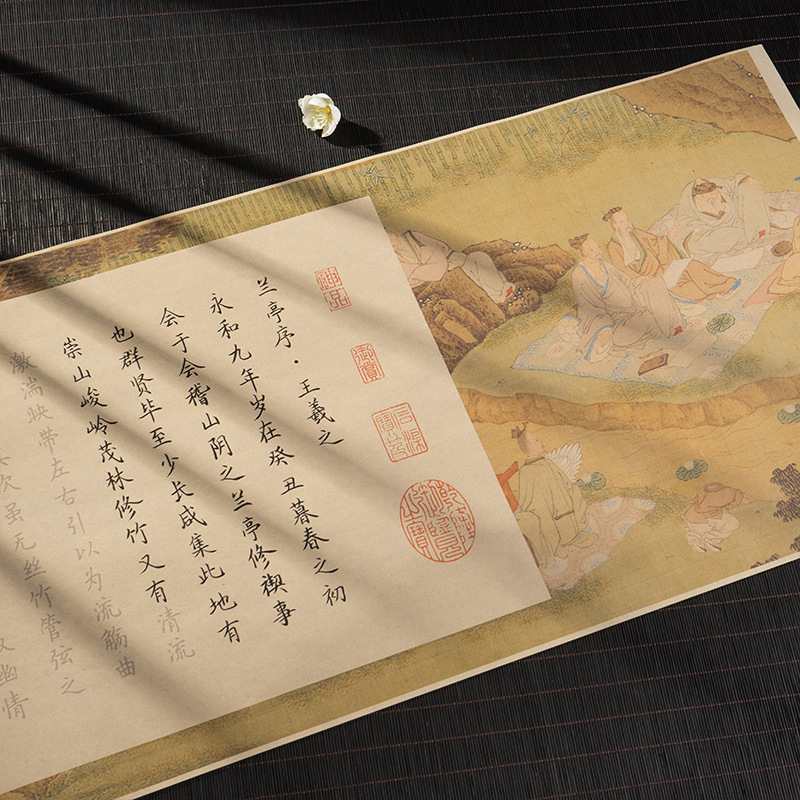 神品
御賞
兰亭序·王羲之
永和九年岁在癸丑暮春之初
会于会稽山阴之兰亭修禊事
也群贤毕至少长咸集此地有
崇山峻岭茂林修竹又有清流
激湍映带左右引以为流觞曲
次虽无丝竹管弦之
幽情